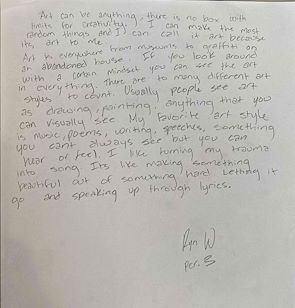 Art can be anything, there is no box with
limits for creativity. I can make the most
random things and I can call it art because
its art to me.
Art is everywhere from museums to graffiti on
an abandoned house. If you look around
with a certain mindset you can see the art
in everything. There are to many different art
styles to count. Usually people see art
as drawing, painting, anything that you
can visually see. My favorite art style
is music, poems, writing, speeches, something
you cant always see but you can
hear or feel. I like turning my trauma
into song. Its like making something
beautiful out of something hard. Letting it
go and speaking up through lyrics.
Ryn W
Per. 3